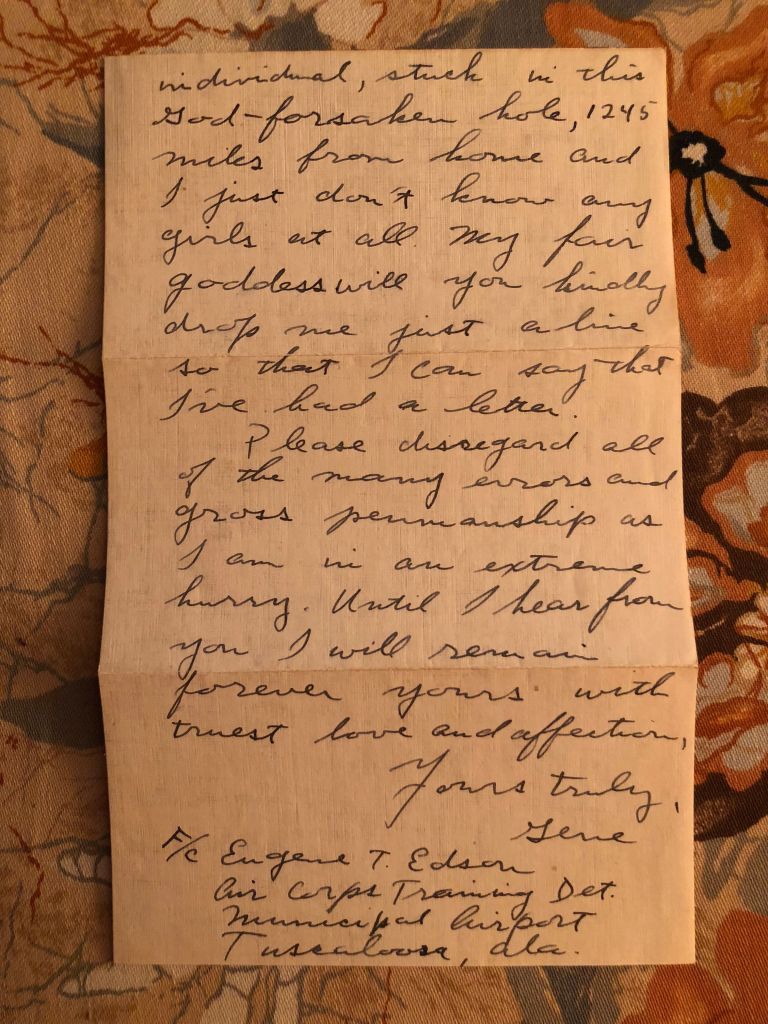 individual, stuck in this
God-forsaken hole, 1245
miles from home and
I just don't know any
girls at all. My fair
goddess will you kindly
drop me just a line
so that I can say that
I've had a letter.
Please disregard all
of the many errors and
gross penmanship as
I am in an extreme
hurry. Until I hear from
you I will remain
forever yours with
truest love and affection,
Yours truly,
Gene
F/C Eugene T. Edson
Air Corps Training Det.
Municipal Airport
Tuscaloosa, Ala.